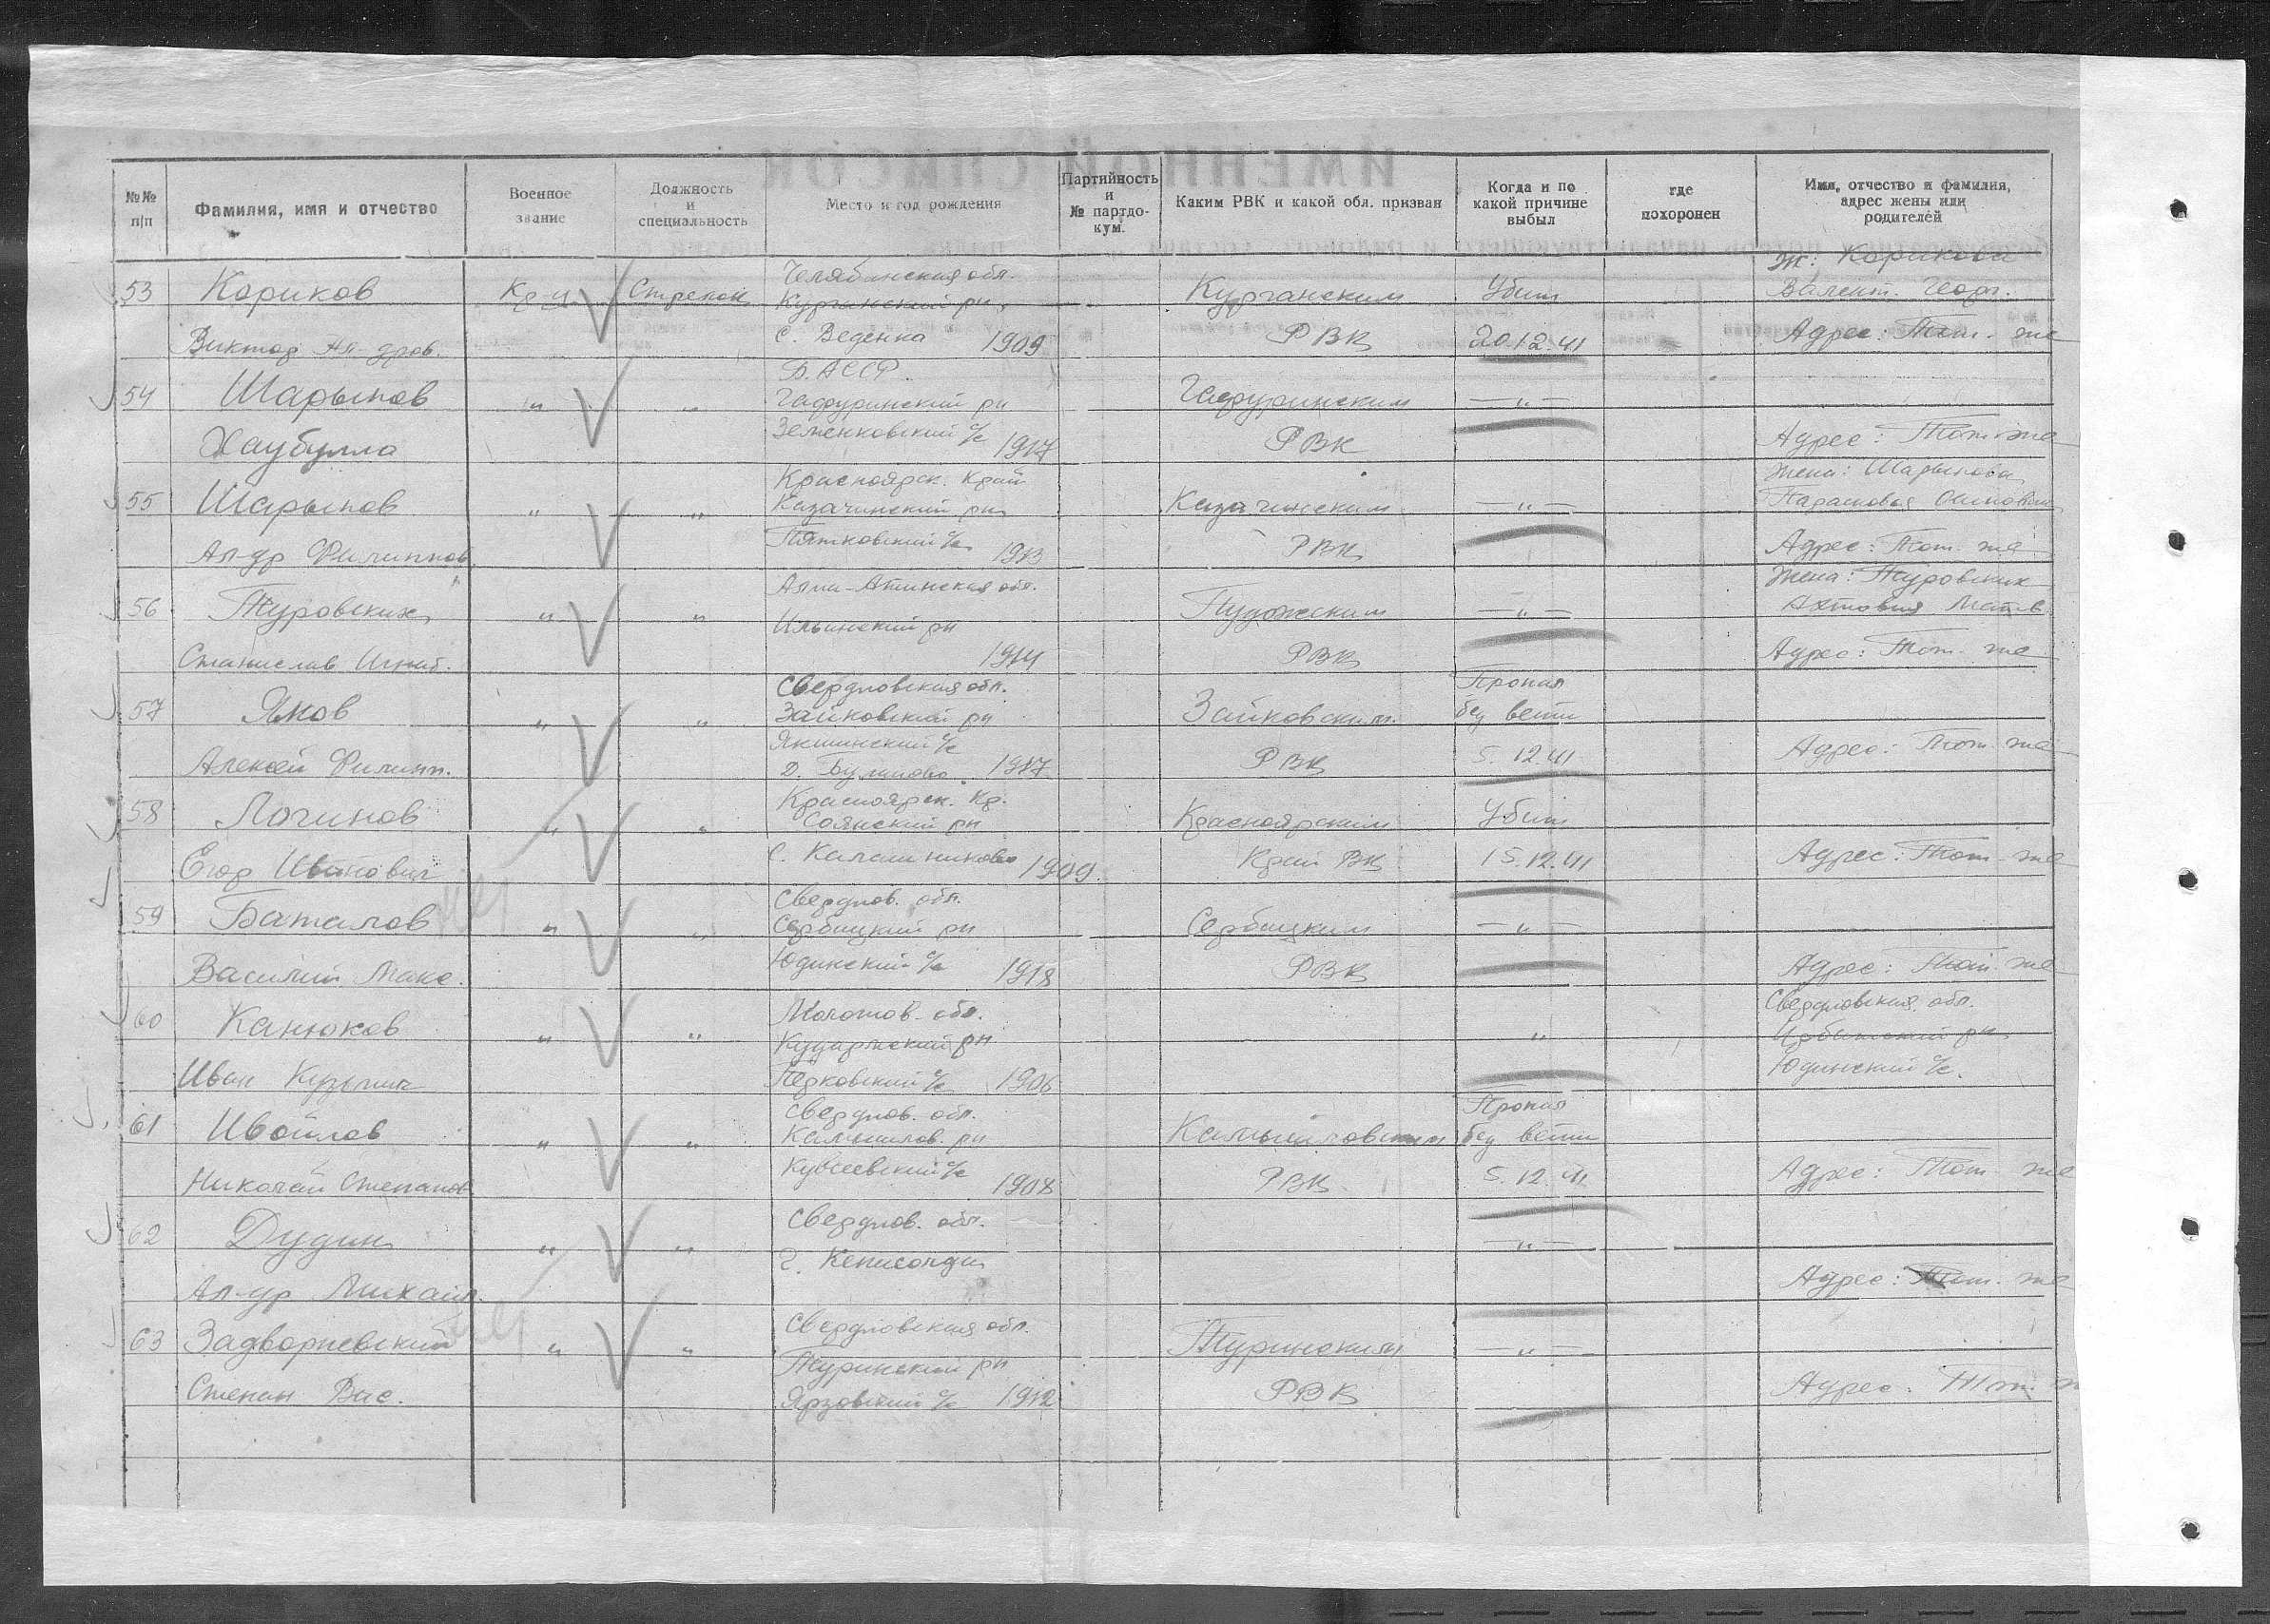 ИМЕННОЙ СПИСОК
№№ п/п
Фамилия, имя и отчество
Военное звание
Должность и специальность
Место и год рождения
Партийность и № партдокум.
Каким РВК и какой обл. призван
Когда и по какой причине выбыл
где похоронен
Имя, отчество и фамилия, адрес жены или родителей
53 Кориков Кр-ц Стрелок Челябинская обл. Курганский рн Курганским Убит Ж: Корикова Валент. Геор.
Виктор Ал-дров. с. Веденка 1909 РВК 20.12.41 Адрес: Тот-же
54 Шарыпов " " Б.АССР. Гафуринский рн Гафуринским — " —
Хаубулла Зеленковский с/с 1917 РВК Адрес: Тот-же
55 Шарыпов " " Красноярск. Край Казачинский рн Казачинским — " — Жена: Шарыпова
Ал-др Филиппов. Пятковский с/с 1913 РВК Адрес: Тот-же
56 Туровских " " Алма-Атинская обл. Ильинский рн — " — Жена: Туровских
Станислав Игнат. 1914 РВК Адрес: Тот-же
57 " " Свердловская обл. Зайковский рн Зайковским Пропал без вести
Алексей Филипп. д. Буланово 1917 РВК 5.12.41 Адрес: Тот-же
58 Логинов " " Красноярск. Кр. Саянский рн Красноярским Убит
Егор Иванович с. Калашниково 1909. Край ВК 15.12.41 Адрес: Тот-же
59 Баталов " " Свердлов. обл. рн — " —
Василий Макс. Юдинский с/с 1918 РВК Адрес: Тот-же
60 Канюков " " Молотов. обл. рн " Свердловская обл. Ирбитский рн
Иван Кузьмич с/с 1906 Юдинский с/с.
61 Ивойлов " " Свердлов. обл. Камышлов. рн Камышловским Пропал без вести
Николай Степанов. с/с 1908 РВК 5.12.41. Адрес: Тот-же
62 Дудин " " Свердлов. обл. — " —
Ал-др Михайл. г. Адрес: Тот-же
63 Задворневский " " Свердловская обл. Туринский рн Туринским — " —
Степан Вас. с/с 1912 РВК Адрес: Тот